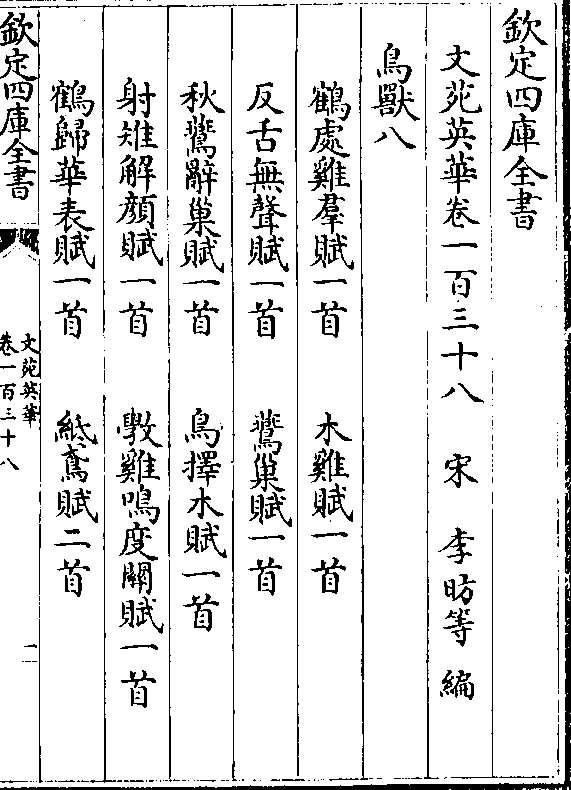 欽定四庫全書
文苑英華卷一百三十八　宋　李昉等　編
鳥獸八
鶴處雞羣賦一首　木雞賦一首
反舌無聲賦一首　鷰巢賦一首
秋鷰辭巢賦一首　鳥擇木賦一首
射雉解顔賦一首　斆雞鳴度關賦一首
鶴歸華表賦一首　紙鳶賦二首
欽定四庫全書
文苑英華
卷一百三十八
一